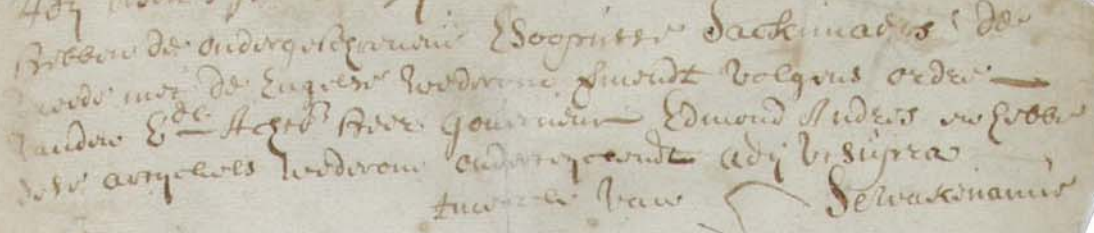 Hebben de ondergeschreven Esopusse Sackimakers de
vrede met de Engelse wederom gemendt volgens ordre
vanden Ed. Achtb Heer Gouverneur Edmond Andros en hebbe
dese artyckels wederom onderteyckendt ady ut supra
van Sewakenamie